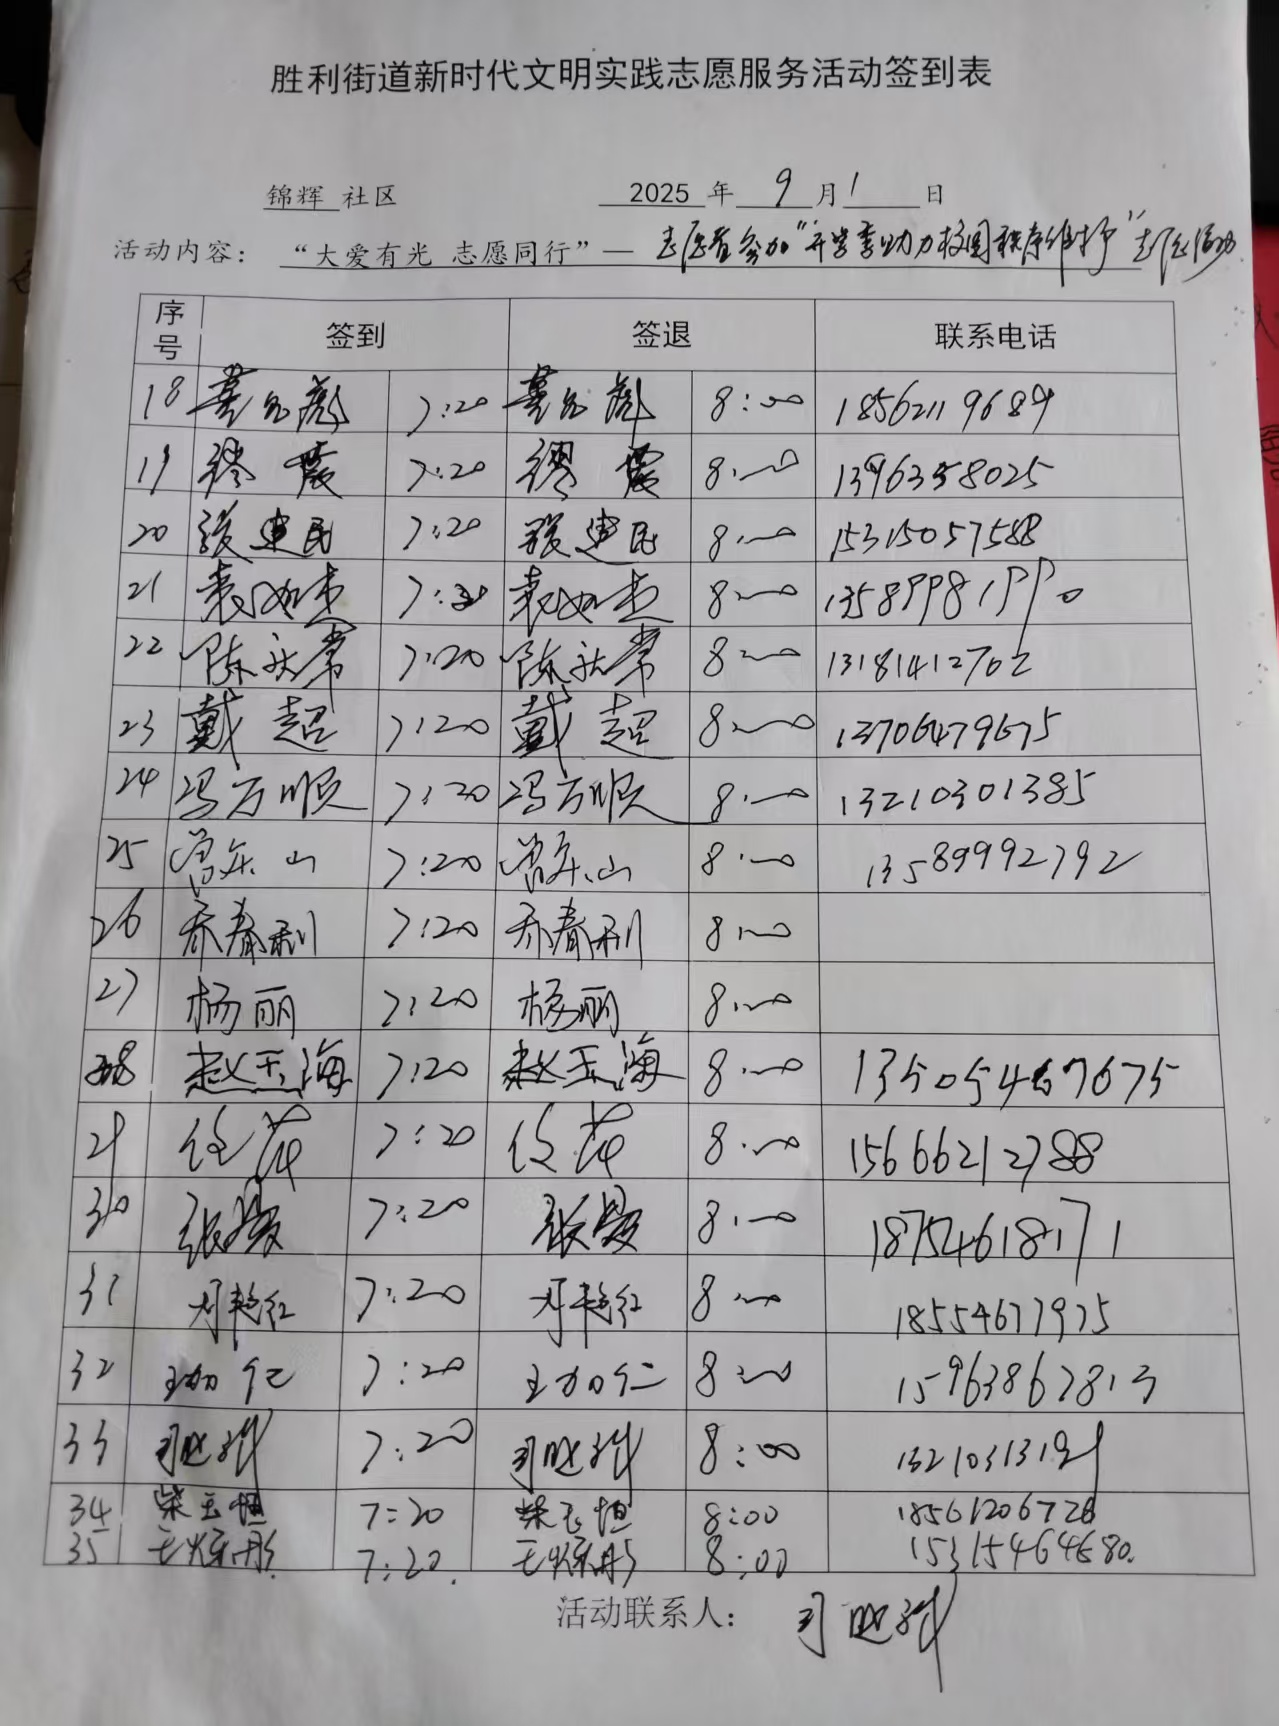 胜利街道新时代文明实践志愿服务活动签到表
锦辉 社区 2025 年 9 月 1 日
活动内容： “大爱有光 志愿同行”— 志愿者参加“开学季助力校园秩序维护”志愿活动
序号 签到 签退 联系电话
18 7:20 8:00 18562119684
19 缪震 7:20 缪震 8:00 1396358025
20 张建民 7:20 张建民 8:00 15315057588
21 袁如杰 7:20 袁如杰 8:00 13589981990
22 陈永常 7:20 陈永常 8:00 13181412702
23 戴超 7:20 戴超 8:00 13706479675
24 冯方顺 7:20 冯方顺 8:00 13210301385
25 曾乐山 7:20 曾乐山 8:00 13589992792
26 乔春利 7:20 乔春利 8:00
27 杨丽 7:20 杨丽 8:00
28 赵玉海 7:20 赵玉海 8:00 13505467675
29 任萍 7:20 任萍 8:00 15666212788
30 7:20 8:00 18754618171
31 7:20 8:00 18554677975
32 王加仁 7:20 王加仁 8:00 15963867813
33 7:20 8:00 13210313191
34 柴玉坦 7:20 柴玉坦 8:00 18561206728
35 7:20. 8:00 15315464680.
活动联系人：